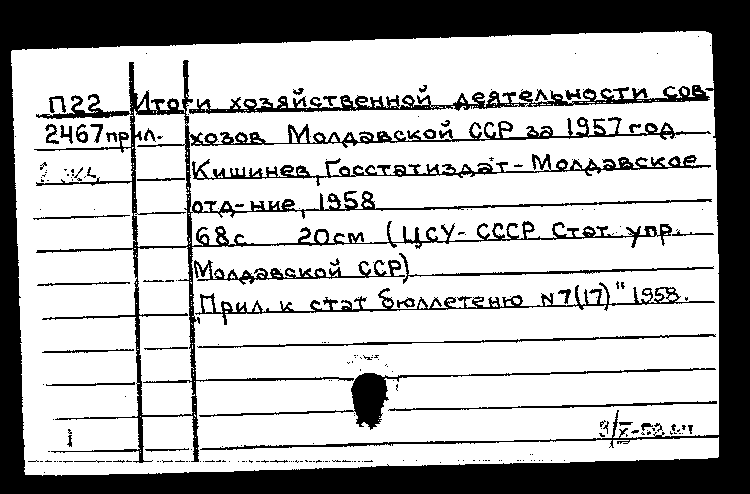 П22 Итоги хозяйственной деятельности сов-
2467прил. хозов Молдавской ССР за 1957 год
Кишинев, Госстатиздат-Молдавское
отд-ние, 1958
68с. 20см (ЦСУ-СССР. Стат. упр.
Молдавской ССР)
"Прил. к стат бюллетеню N7(17)" 1958.
1